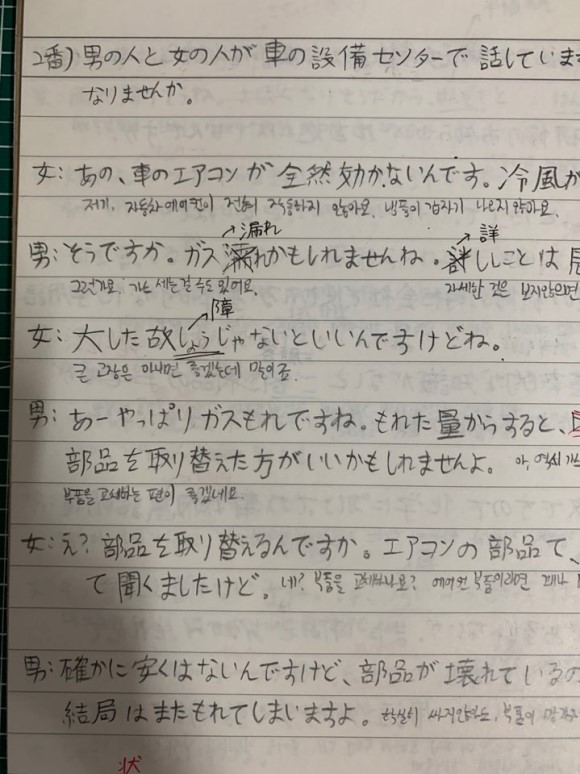 2番) 男の人と女の人が車の設備センターで話していま
なりませんか。
女: あの、車のエアコンが全然効かないんです。冷風が
저기, 자동차 에어컨이 전혀 작동하지 않아요. 냉풍이 갑자기 나오지 않아요.
→漏れ
→詳
男: そうですか。ガス漏れかもしれませんね。詳ししことは見
그런가요. 가스 세는걸 수도 있어요. 자세한 것은 보지않으면
→障
女: 大した故しょうじゃないといいんですけどね。
큰 고장은 아니면 좋겠는데 말이죠.
男: あーやっぱりガスもれですね。もれた量からすると、
部品を取り替えた方がいいかもしれませんよ。 아, 역시 가스
부품을 교체하는 편이 좋겠네요.
女: え? 部品を取り替えるんですか。エアコンの部品て、
て聞くましたけど。 네? 부품을 교체하나요? 에어컨 부품이라면
男: 確かに安くはないんですけど、部品が壊れているの
結局はまたもれてしまいますよ。 확실히 싸지않아도, 부품이 망가
状